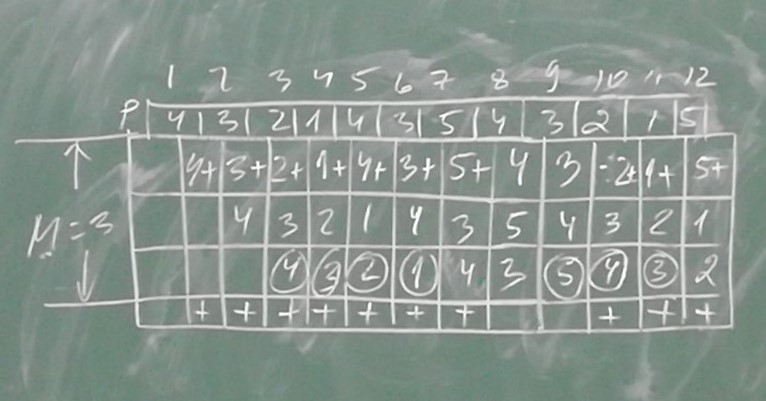 1 2 3 4 5 6 7 8 9 10 11 12
P 4 3 2 1 4 3 5 4 3 2 1 5
4+ 3+ 2+ 1+ 4+ 3+ 5+ 4 3 -2+ 1+ 5+
M=3 4 3 2 1 4 3 5 4 3 2 1
4 3 2 1 4 3 5 4 3 2
+ + + + + + + + + +